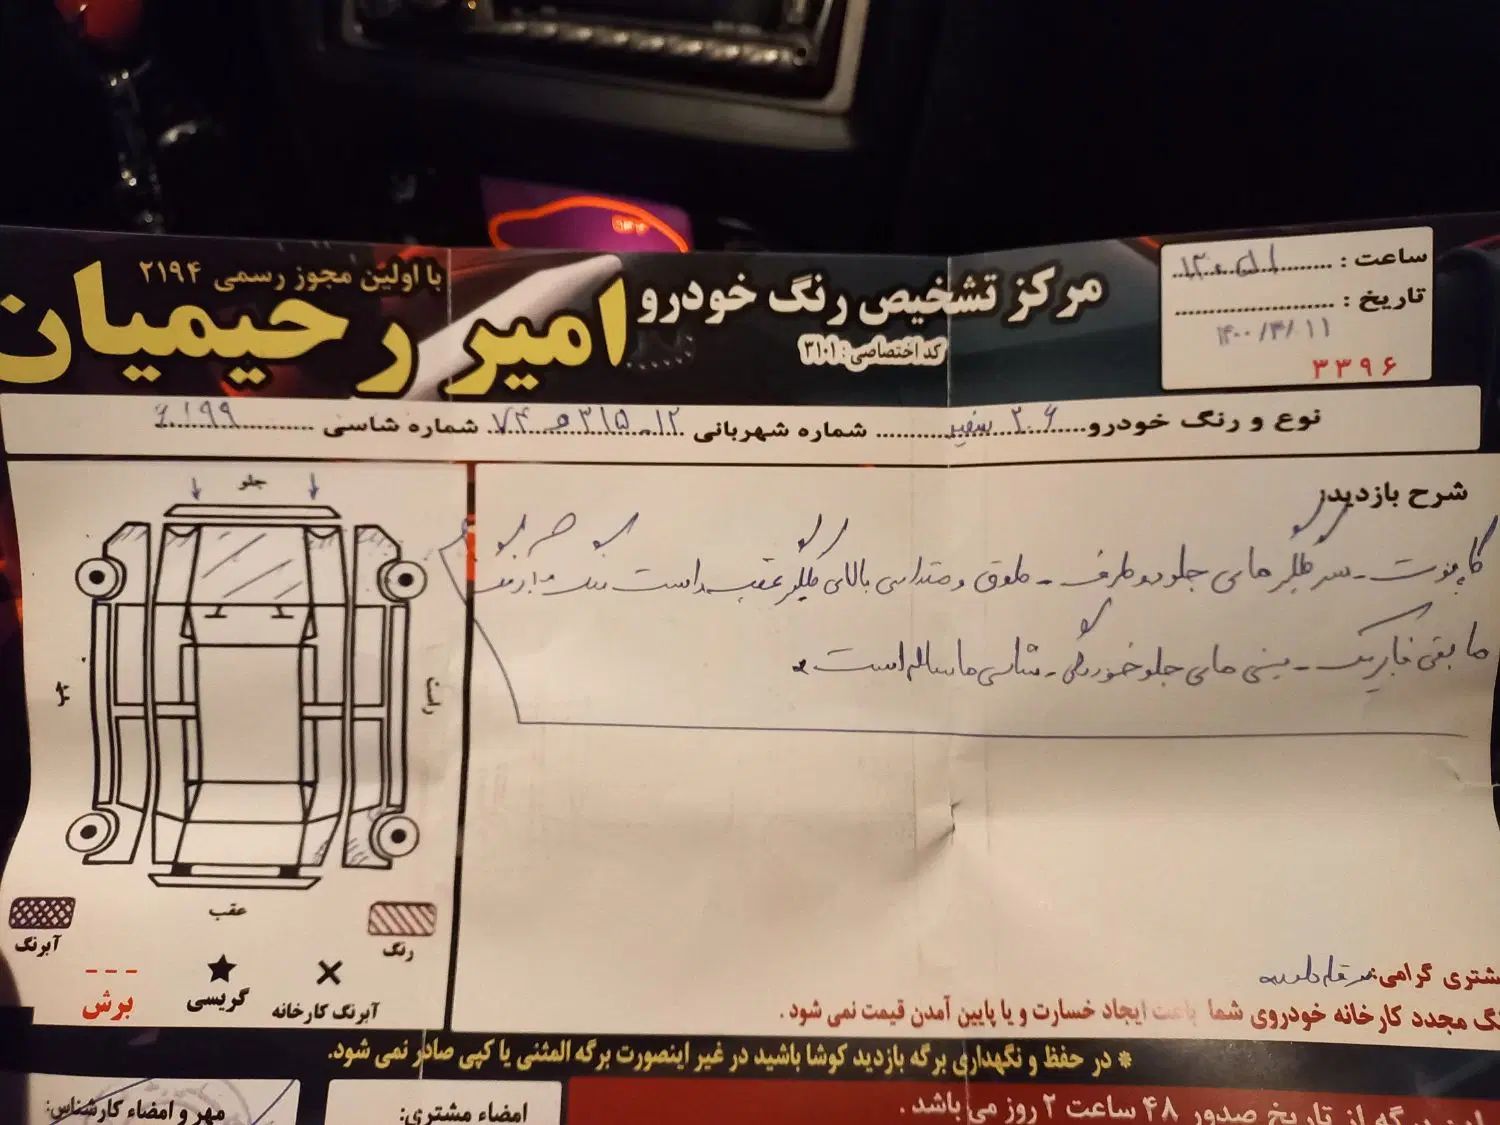 ساعت :
تاریخ :
۱۴۰۰/۴/۱۱
۳۳۹۶
با اولین مجوز رسمی ۲۱۹۴
مرکز تشخیص رنگ خودرو امیر رحیمیان
کد اختصاصی : ۳۱۰۱
نوع و رنگ خودرو ۲۰۶ سفید شماره شهربانی ۱۲ـ ۳۱۵ ۷۴ شماره شاسی ۱۹۹
جلو
راست
چپ
عقب
رنگ
آبرنگ
آبرنگ کارخانه
گریسی
برش
شرح بازدید:
کاپوت ـ سر گلگیر های جلو دو طرف ـ طوق و مقداری بالای گلگیر عقب راست رنگ دارد
ما بقی فابریک ـ سینی های جلو خوردگی ـ شاسی ها سالم است
شتری گرامی:
گ مجدد کارخانه خودروی شما باعث ایجاد خسارت و یا پایین آمدن قیمت نمی شود .
* در حفظ و نگهداری برگه بازدید کوشا باشید در غیر اینصورت برگه المثنی یا کپی صادر نمی شود.
مهر و امضاء کارشناس:
امضاء مشتری:
برگه از تاریخ صدور ۴۸ ساعت ۲ روز می باشد .